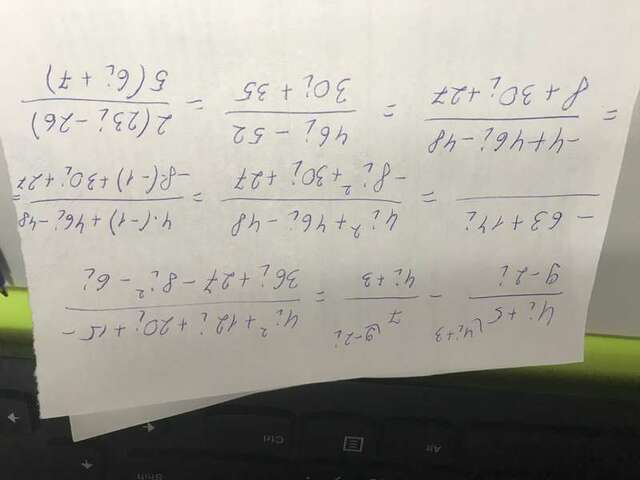 Shift
Alt
Ctrl
(4i+5)/(9-2i) ⌊4i+3 - 7/(4i+3) ⌊9-2i = (4i²+12i+20i+15-)/(36i+27-8i²-6i)
(-63+14i)/ = (4i²+46i-48)/(-8i²+30i+27) = (4·(-1)+46i-48)/(-8·(-1)+30i+27) =
= (-4+46i-48)/(8+30i+27) = (46i-52)/(30i+35) = 2(23i-26)/5(6i+7)